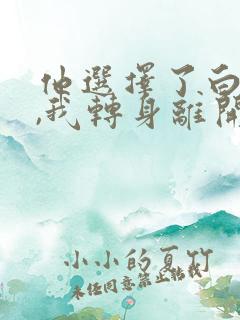 他選擇了白
,我轉身離開
小小的夏竹
未經同意禁止轉載